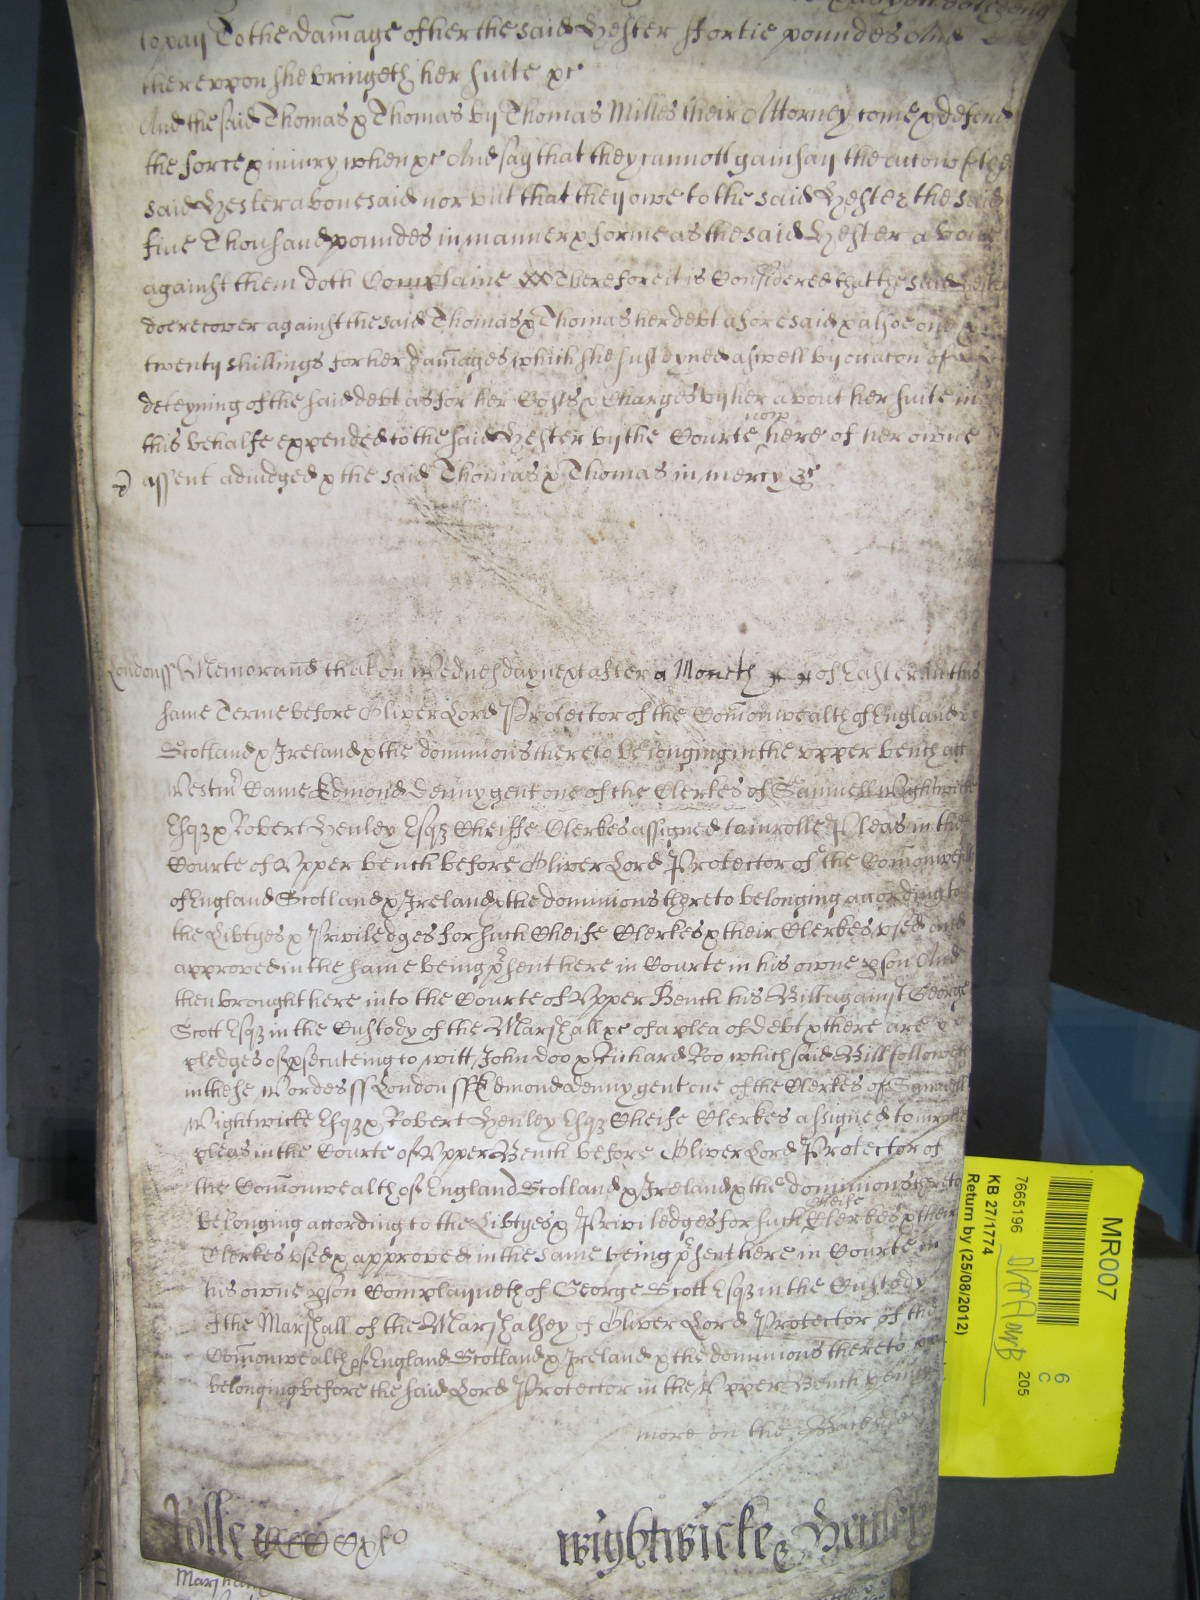 to pay To the damage of her the said Hester ffortie poundes And
thereuppon she bringeth her suite &c
And the said Thomas & Thomas by Thomas Milles their Attorney come & defend
the force & iniury when &c And say that they cannott gainsay the accon of the
said Hester abouesaid nor but that they owe to the said Hester the said
fiue Thousand poundes in manner & forme as the said Hester aboue
against them doth Complaine Therefore it is Considered that the said Hester
doe recouer against the said Thomas & Thomas her debt aforesaid & alsoe one &
twenty shillings for her damages which she susteyned aswell by occacon of
deteyning of the said debt as for her Costs & Charges by her about her suite in
this behalfe expended to the said Hester by the Courte now here of her owne
assent adiudged & the said Thomas & Thomas in mercy &c
London ss Memorand that on Wednesday next after a Moneth of Easter in this
same Terme before Oliver Lord Protector of the Comonwealth of England
Scotland & Ireland & the dominions thereto belonging in the upper bench att
Westmr Came Edmond Denny gent one of the Clerkes of Samuell Wightwicke
Esqz & Robert Henley Esqz Cheiffe Clerkes assigned to inrolle Pleas in the
Courte of Upper bench before Oliver Lord Protector of the Comonwealth
of England Scotland & Ireland & the dominions thereto belonging according to
the Libtyes & Priviledges for such Cheife Clerkes & their Clerkes used and
approved in the same being psent here in Courte in his owne pson And
then brought here into the Courte of Upper Bench his Bill against George
Scott Esqz in the Custody of the Marshall &c of a plea of debt & there are
pledges of psecuteing to witt John Doo & Richard Roo which said Bill followeth
in these Wordes ss London ss Edmond Denny gent one of the Clerkes of Samuell
Wightwicke Esqz & Robert Henley Esqz Cheife Clerkes assigned to inrolle
pleas in the Courte of Upper Bench before Oliver Lord Protector of
the Comonwealth of England Scotland & Ireland & the dominions thereto
belonging according to the Libtyes & Priviledges for such Cheife Clerkes & their
Clerkes used & approved in the same being psent here in Courte in
his owne pson Complayneth of George Scott Esqz in the Custody
of the Marshall of the Marshalsey of Oliver Lord Protector of the
Comonwealth of England Scotland & Ireland & the dominions thereto
belonging before the said Lord Protector in the Upper Bench being
more on the Backside
Rolle
wightwicke & Henley
MR007
6
C
205
7665196
KB 27/1774
Return by (25/08/2012)